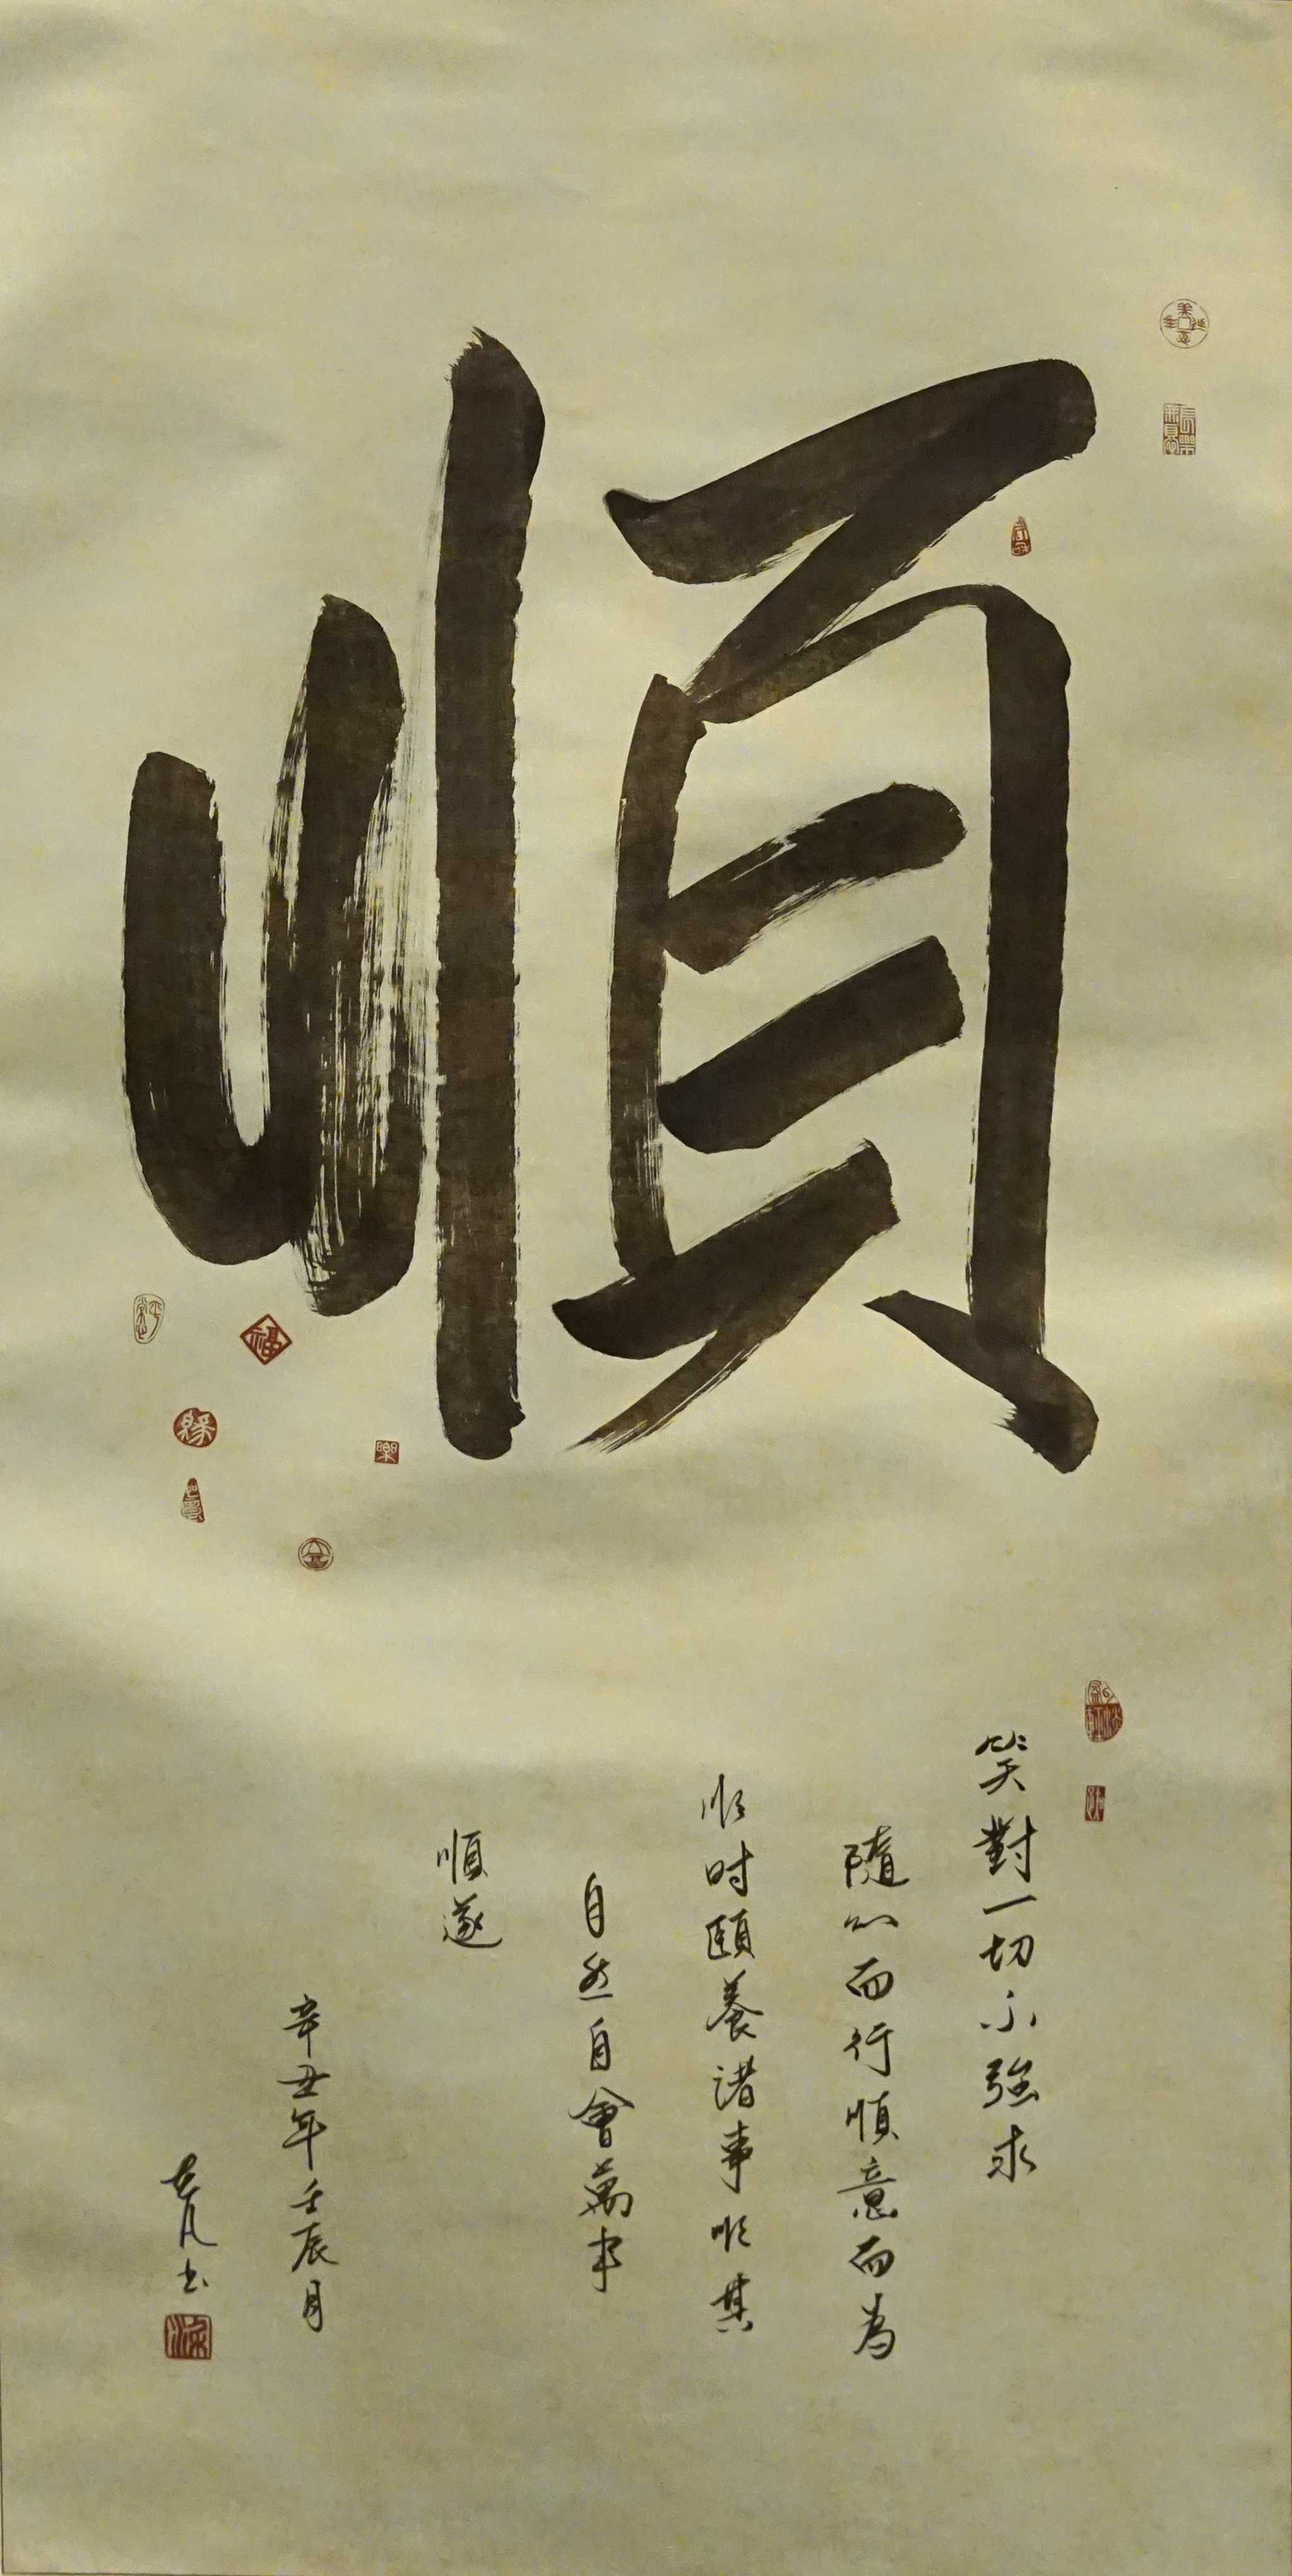 順
笑對一切不強求
隨心而行順意而為
順時頤養諸事順其
自然自會萬事
順遂
辛丑年壬辰月
書
福
緣
樂